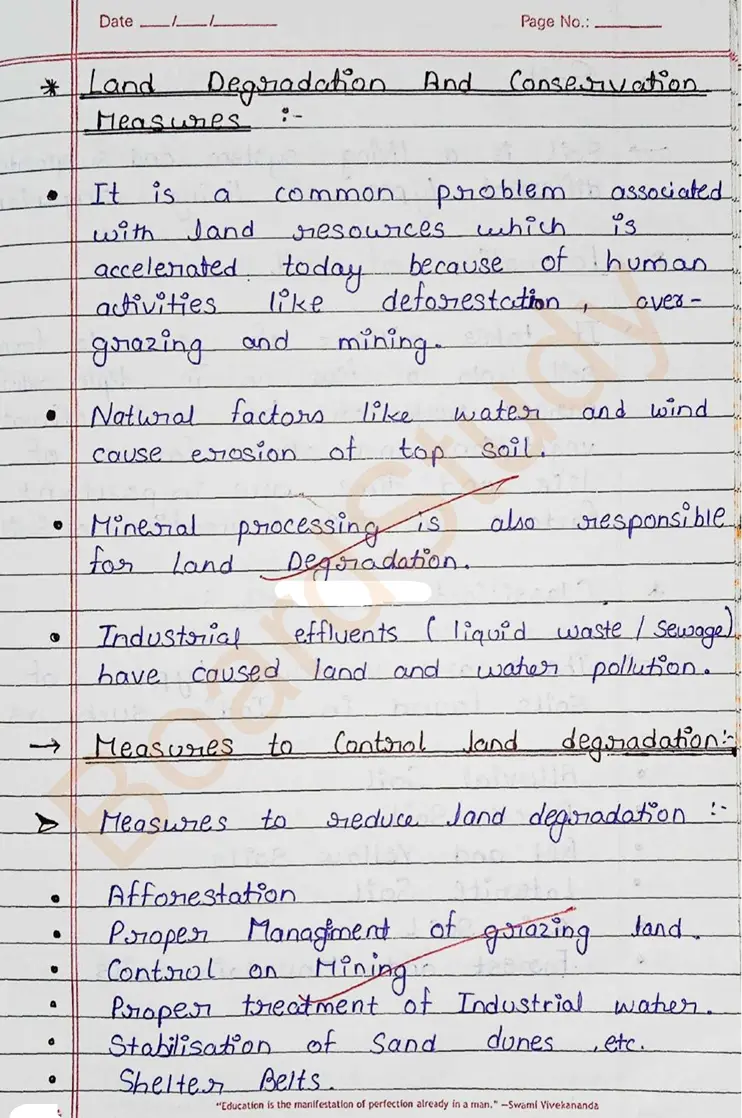 Date ___/___/______ Page No.: ______
* Land Degradation And Conservation
Measures :-
• It is a common problem associated
with land resources which is
accelerated today because of human
activities like deforestation, over-
grazing and mining.
• Natural factors like water and wind
cause erosion of top soil.
• Mineral processing is also responsible
for land Degradation.
• Industrial effluents (liquid waste / sewage)
have caused land and water pollution.
→ Measures to Control land degradation:-
➢ Measures to reduce land degradation :-
• Afforestation
• Proper Managment of grazing land.
• Control on Mining
• Proper treatment of Industrial water.
• Stabilisation of Sand dunes , etc.
• Shelter Belts.
"Education is the manifestation of perfection already in a man." –Swami Vivekananda
BoardStudy